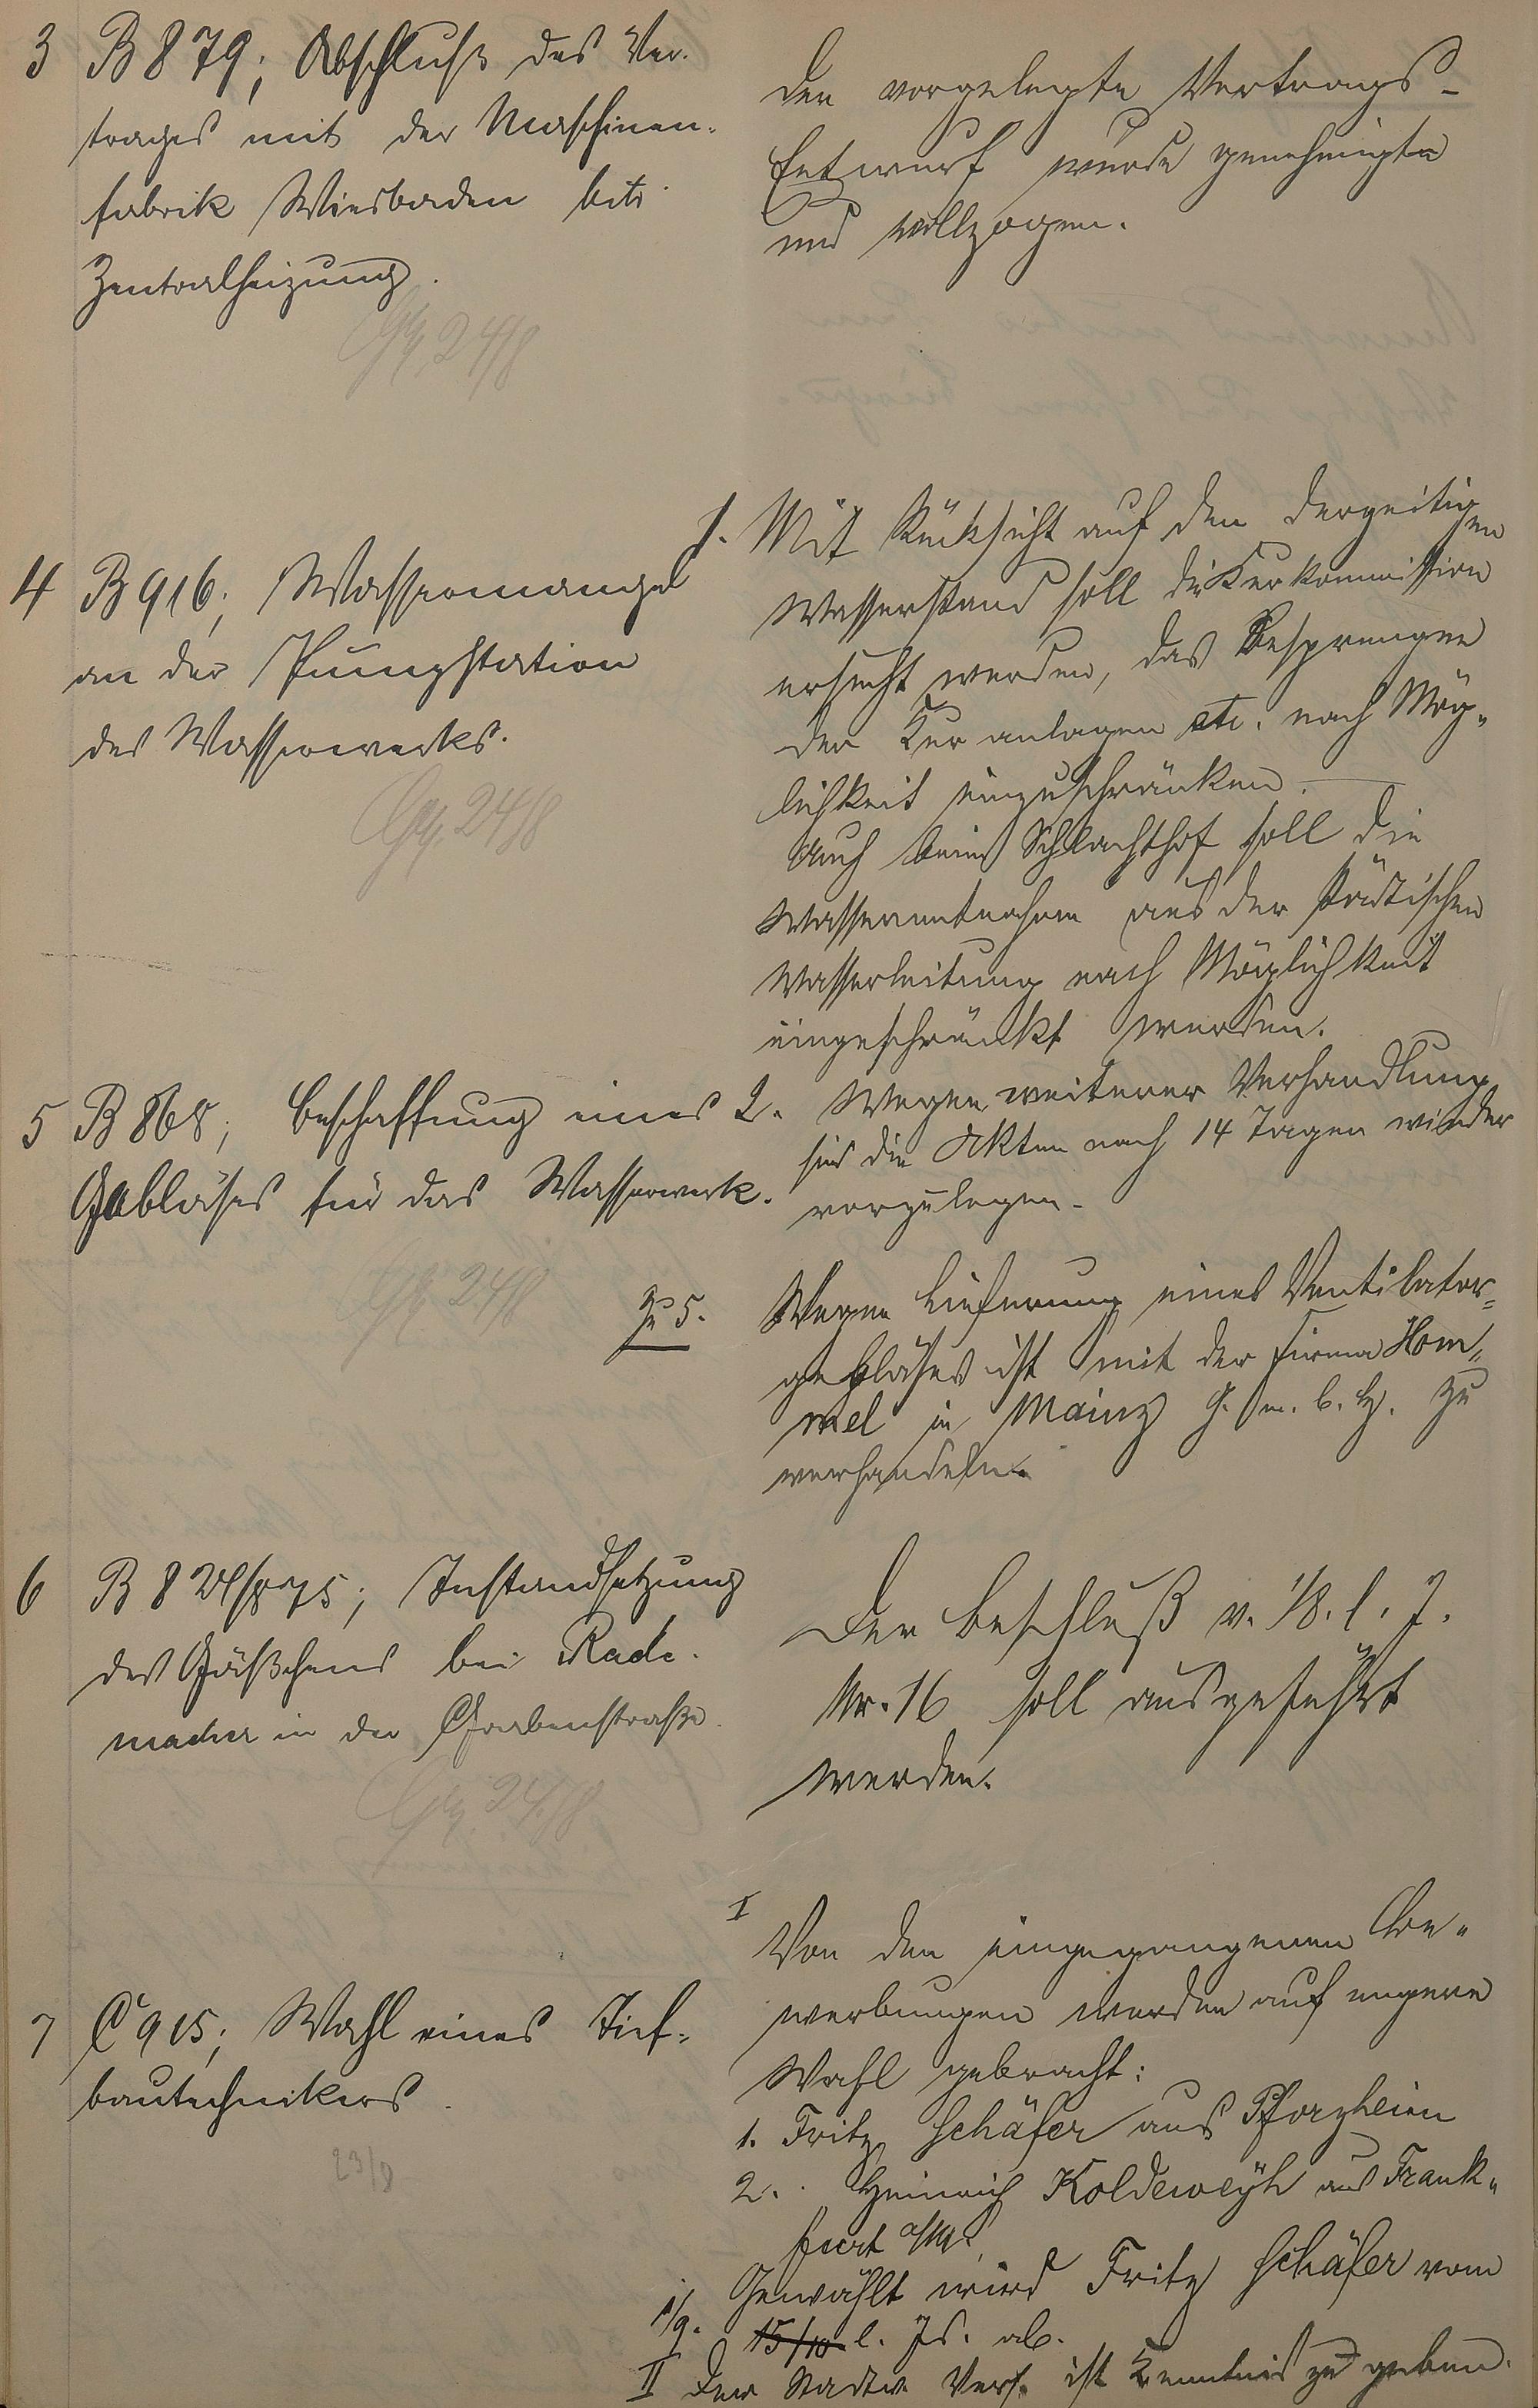 3 B 879; Abschluß des Ver-
trages mit der Maschinen-
fabrik Wiesbaden betr.
Zentralheizung.
24/8
Der vorgelegte Vertrags-
Entwurf wurde genehmigt
und vollzogen.
4 B 916; Wassermangel
an der Pumpstation
des Wasserwerks.
24/8
1. Mit Rücksicht auf den derzeitigen
Wasserstand soll die Kurkommission
ersucht werden, das Besprengen
der Kuranlagen etc. nach Mög-
lichkeit einzuschränken.
Auch beim Schlachthof soll die
Wasserentnahme aus der städtischen
Wasserleitung nach Möglichkeit
eingeschränkt werden.
2. Wegen weiterer Verhandlung
sind die Akten nach 14 Tagen wieder
vorzulegen.
5 B 868; Beschaffung eines
Gebläses für das Wasserwerk.
24/8
Zu 5. Wegen Lieferung eines Ventilator-
gebläses ist mit der Firma Hom-
mel in Mainz G. m. b. H. zu
verhandeln.
6 B 824/875; Instandsetzung
des Gäßchens bei Rade-
macher in der Grabenstraße.
24/8
Der Beschluß v. 1/8. l. J.
Nr. 16 soll ausgeführt
werden.
7 C 915; Wahl eines Tief-
bautechnikers.
23/8
I Von den eingegangenen Be-
werbungen werden auf engere
Wahl gebracht:
1. Fritz Schäfer aus Pforzheim
2. Heinrich Koldeweyh aus Frank-
furt a/M.
Gewählt wird Fritz Schäfer vom
1/9. 15/10 l. Js. ab.
II Der Stadtv. Vers. ist Kenntnis zu geben.